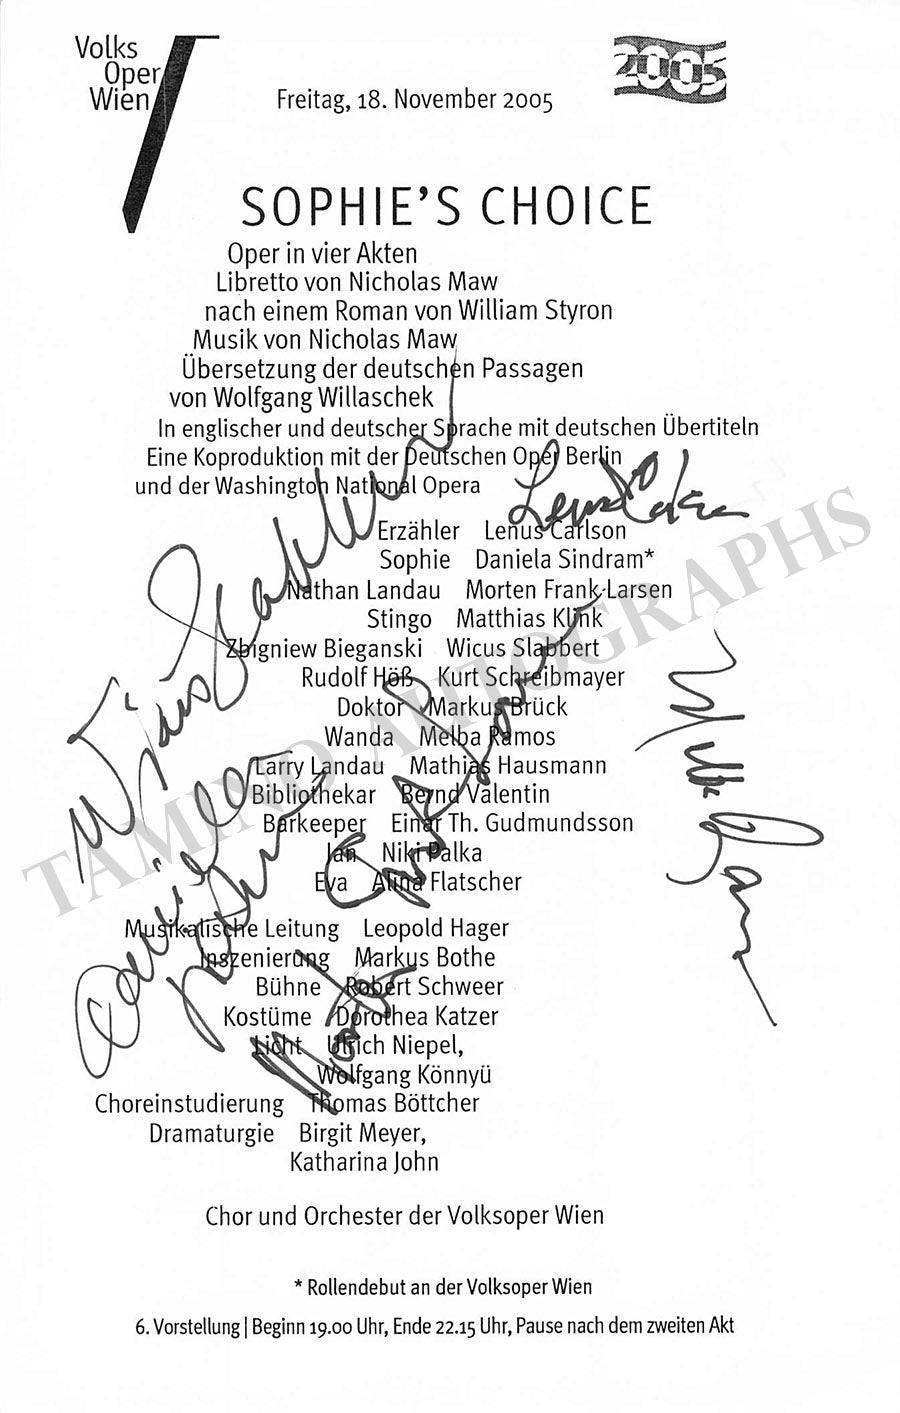 Volks
Oper
Wien
2005
Freitag, 18. November 2005
SOPHIE'S CHOICE
Oper in vier Akten
Libretto von Nicholas Maw
nach einem Roman von William Styron
Musik von Nicholas Maw
Übersetzung der deutschen Passagen
von Wolfgang Willaschek
In englischer und deutscher Sprache mit deutschen Übertiteln
Eine Koproduktion mit der Deutschen Oper Berlin
und der Washington National Opera
Erzähler Lenus Carlson
Sophie Daniela Sindram*
Nathan Landau Morten Frank Larsen
Stingo Matthias Klink
Zbigniew Bieganski Wicus Slabbert
Rudolf Höß Kurt Schreibmayer
Doktor Markus Brück
Wanda Melba Ramos
Larry Landau Mathias Hausmann
Bibliothekar Bernd Valentin
Barkeeper Einar Th. Gudmundsson
Jan Niki Palka
Eva Alina Flatscher
Musikalische Leitung Leopold Hager
Inszenierung Markus Bothe
Bühne Robert Schweer
Kostüme Dorothea Katzer
Licht Ulrich Niepel,
Wolfgang Könnyü
Choreinstudierung Thomas Böttcher
Dramaturgie Birgit Meyer,
Katharina John
Chor und Orchester der Volksoper Wien
* Rollendebut an der Volksoper Wien
6. Vorstellung | Beginn 19.00 Uhr, Ende 22.15 Uhr, Pause nach dem zweiten Akt
Wicus Slabbert
Lenus Carlson
Melba Ramos
TAMINO AUTOGRAPHS